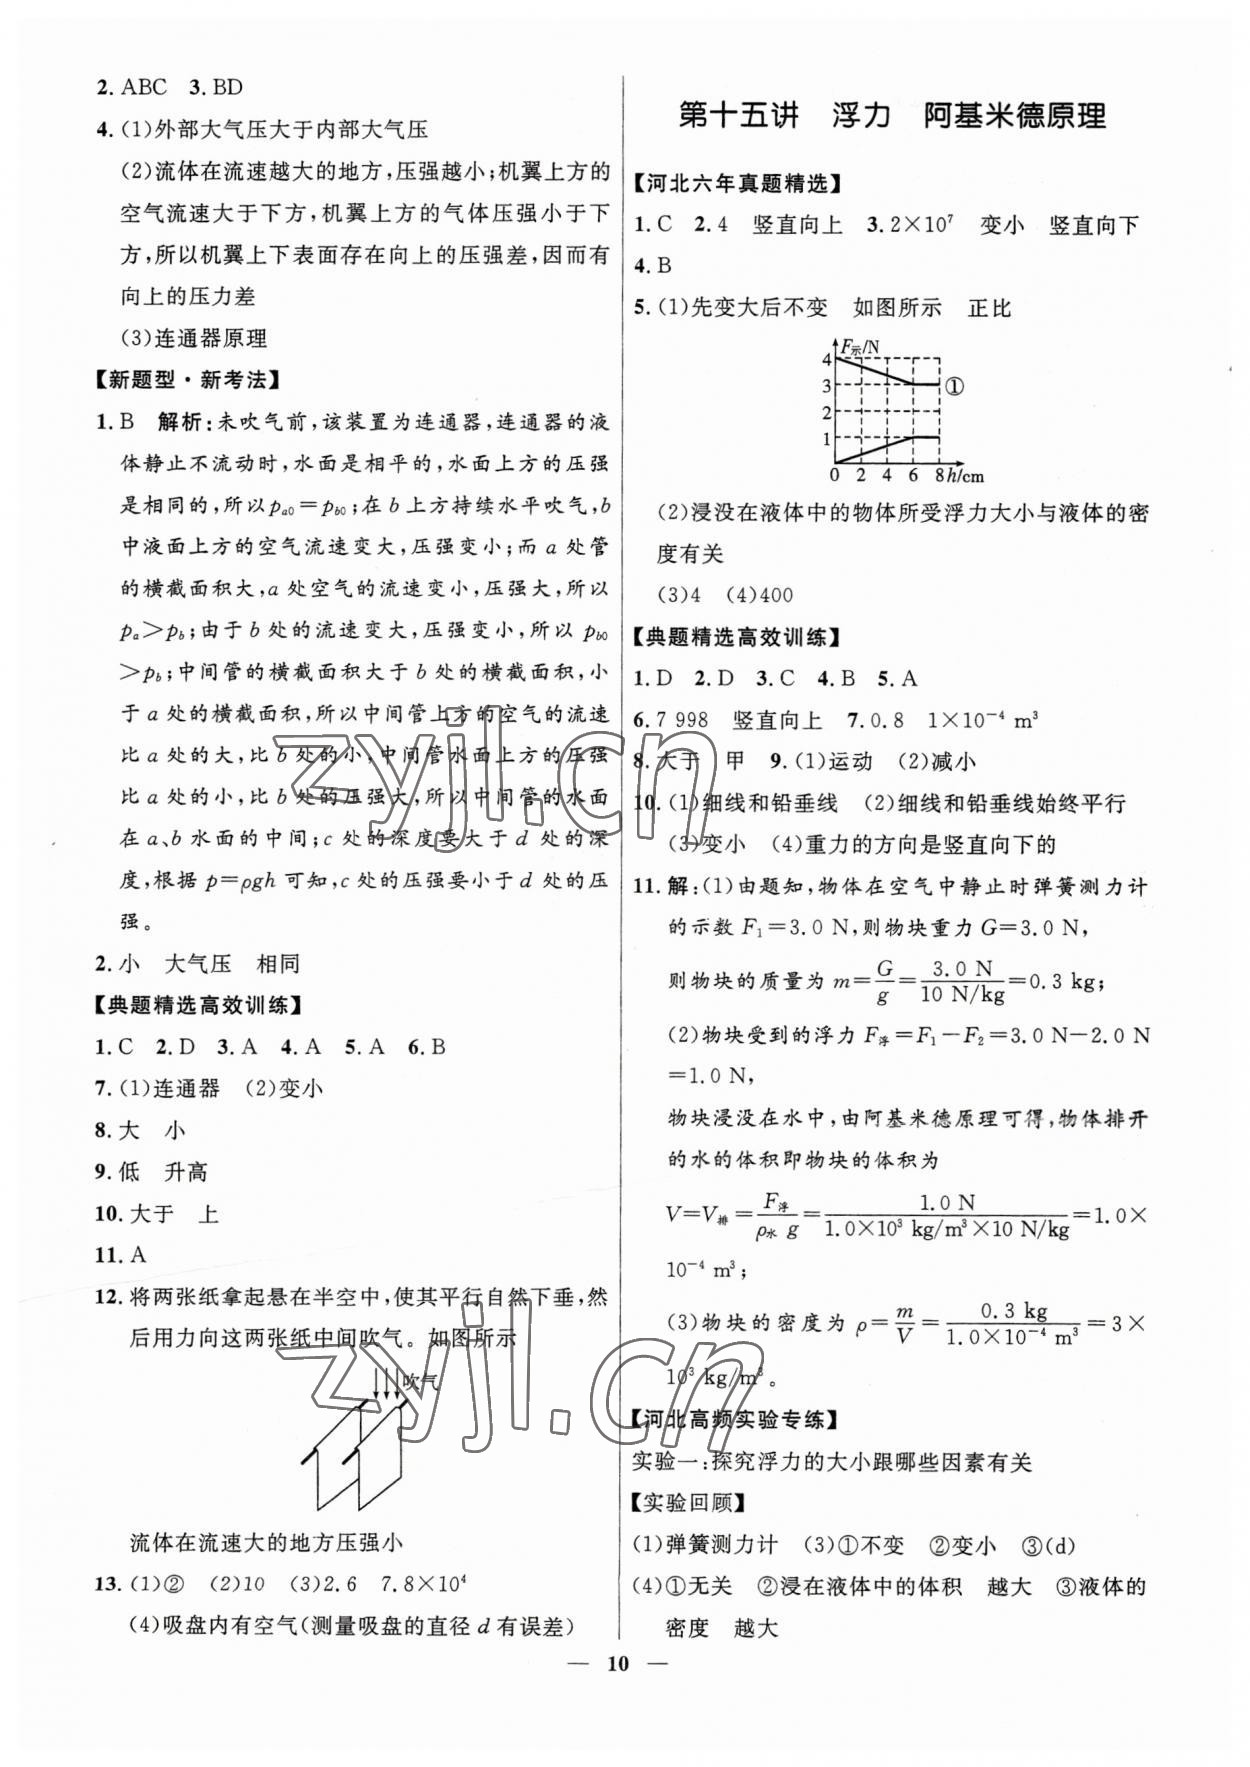 2. ABC　3. BD
4. (1)外部大气压大于内部大气压
(2)流体在流速越大的地方,压强越小;机翼上方的
空气流速大于下方,机翼上方的气体压强小于下
方,所以机翼上下表面存在向上的压强差,因而有
向上的压力差
(3)连通器原理
【新题型·新考法】
1. B　解析:未吹气前,该装置为连通器,连通器的液
体静止不流动时,水面是相平的,水面上方的压强
是相同的,所以pa0=pb0;在b上方持续水平吹气,b
中液面上方的空气流速变大,压强变小;而a处管
的横截面积大,a处空气的流速变小,压强大,所以
pa>pb;由于b处的流速变大,压强变小,所以pb0
>pb;中间管的横截面积大于b处的横截面积,小
于a处的横截面积,所以中间管上方的空气的流速
比a处的大,比b处的小,中间管水面上方的压强
比a处的小,比b处的压强大,所以中间管的水面
在a、b水面的中间;c处的深度要大于d处的深
度,根据p=ρgh可知,c处的压强要小于d处的压
强。
2. 小　大气压　相同
【典题精选高效训练】
1. C　2. D　3. A　4. A　5. A　6. B
7. (1)连通器　(2)变小
8. 大　小
9. 低　升高
10. 大于　上
11. A
12. 将两张纸拿起悬在半空中,使其平行自然下垂,然
后用力向这两张纸中间吹气。如图所示
吹气
流体在流速大的地方压强小
13. (1)②　(2)10　(3)2.6　7.8×10⁴
(4)吸盘内有空气(测量吸盘的直径d有误差)
第十五讲　浮力　阿基米德原理
【河北六年真题精选】
1. C　2. 4　竖直向上　3. 2×10⁷　变小　竖直向下
4. B
5. (1)先变大后不变　如图所示　正比
F示/N
4
3
①
2
1
0 2 4 6 8 h/cm
(2)浸没在液体中的物体所受浮力大小与液体的密
度有关
(3)4　(4)400
【典题精选高效训练】
1. D　2. D　3. C　4. B　5. A
6. 7 998　竖直向上　7. 0.8　1×10⁻⁴ m³
8. 大于　甲　9. (1)运动　(2)减小
10. (1)细线和铅垂线　(2)细线和铅垂线始终平行
(3)变小　(4)重力的方向是竖直向下的
11. 解:(1)由题知,物体在空气中静止时弹簧测力计
的示数F₁=3.0 N,则物块重力G=3.0 N,
则物块的质量为m=G/g=3.0 N/10 N/kg=0.3 kg;
(2)物块受到的浮力F浮=F₁-F₂=3.0 N-2.0 N
=1.0 N,
物块浸没在水中,由阿基米德原理可得,物体排开
的水的体积即物块的体积为
V=V排=F浮/ρ水 g=1.0 N/1.0×10³ kg/m³×10 N/kg=1.0×
10⁻⁴ m³;
(3)物块的密度为ρ=m/V=0.3 kg/1.0×10⁻⁴ m³=3×
10³ kg/m³。
【河北高频实验专练】
实验一:探究浮力的大小跟哪些因素有关
【实验回顾】
(1)弹簧测力计　(3)①不变　②变小　③(d)
(4)①无关　②浸在液体中的体积　越大　③液体的
密度　越大
— 10 —
zyjl.cn
zyjl.cn